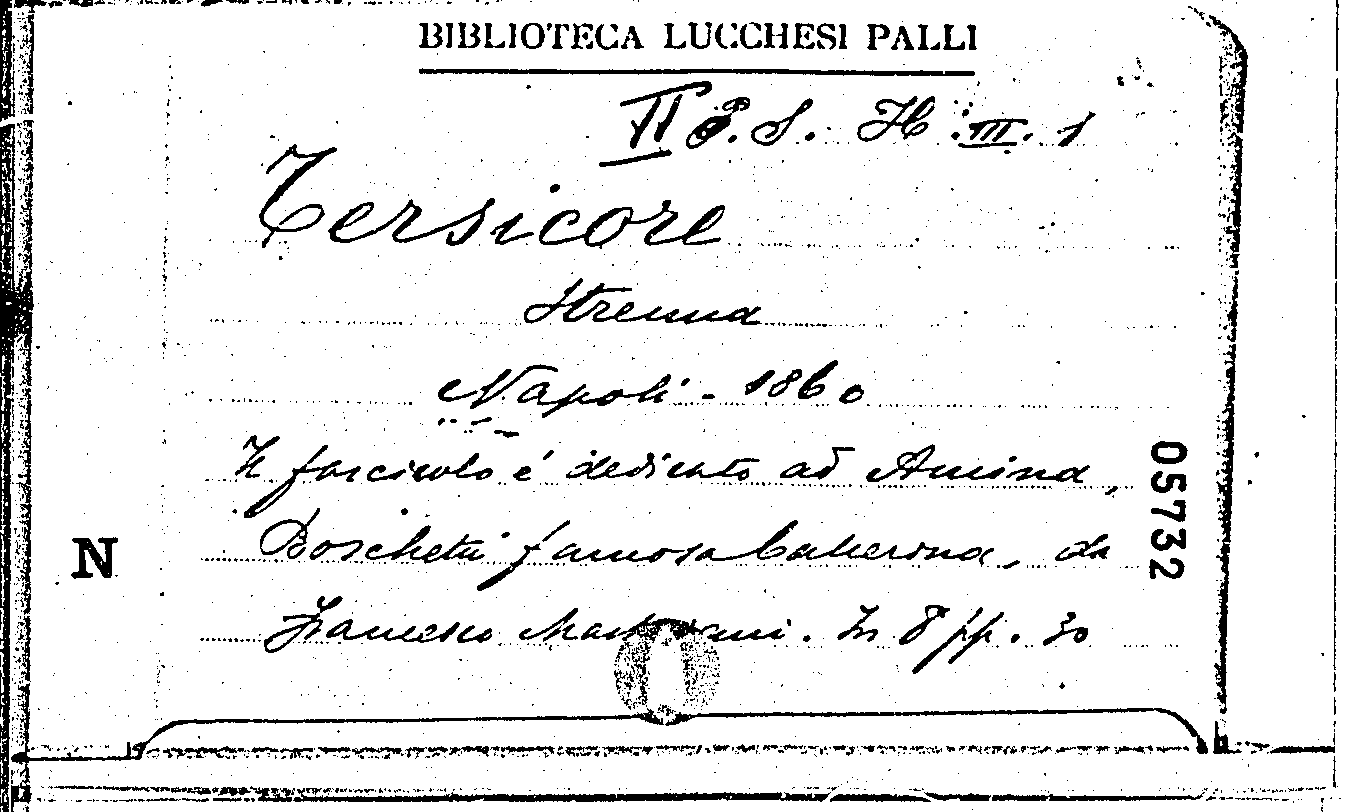 BIBLIOTECA LUCCHESI PALLI
II P. S. H. III. 1
Tersicore
Strenna
Napoli - 1860
Il fascicolo é dedicato ad Amina,
Boschetti famosa ballerina, da
N
Francesco Mastriani. In 8 pp. 30
05732